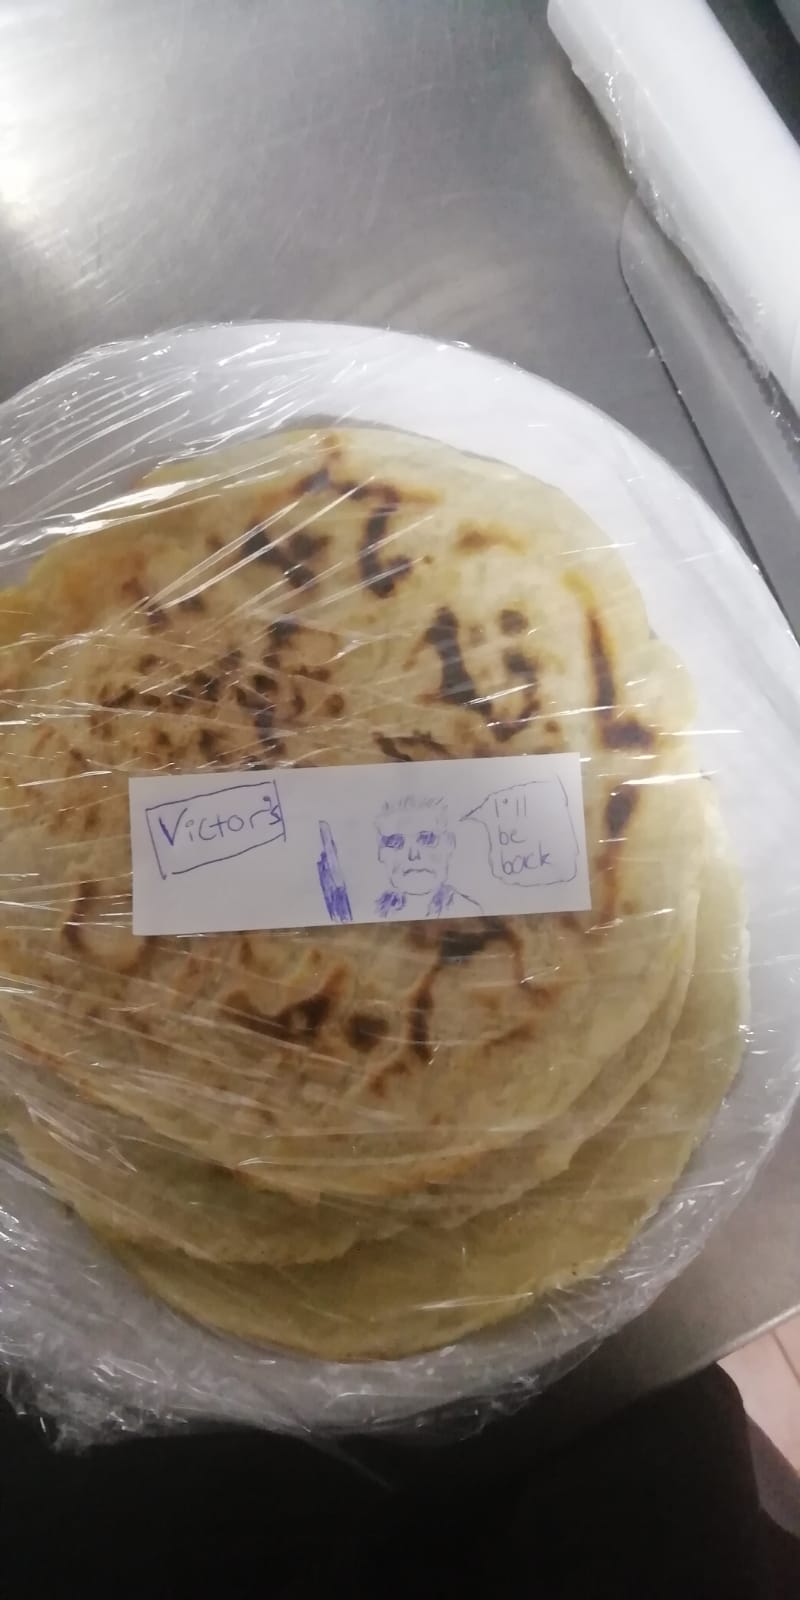 Victor's
I'll
be
back